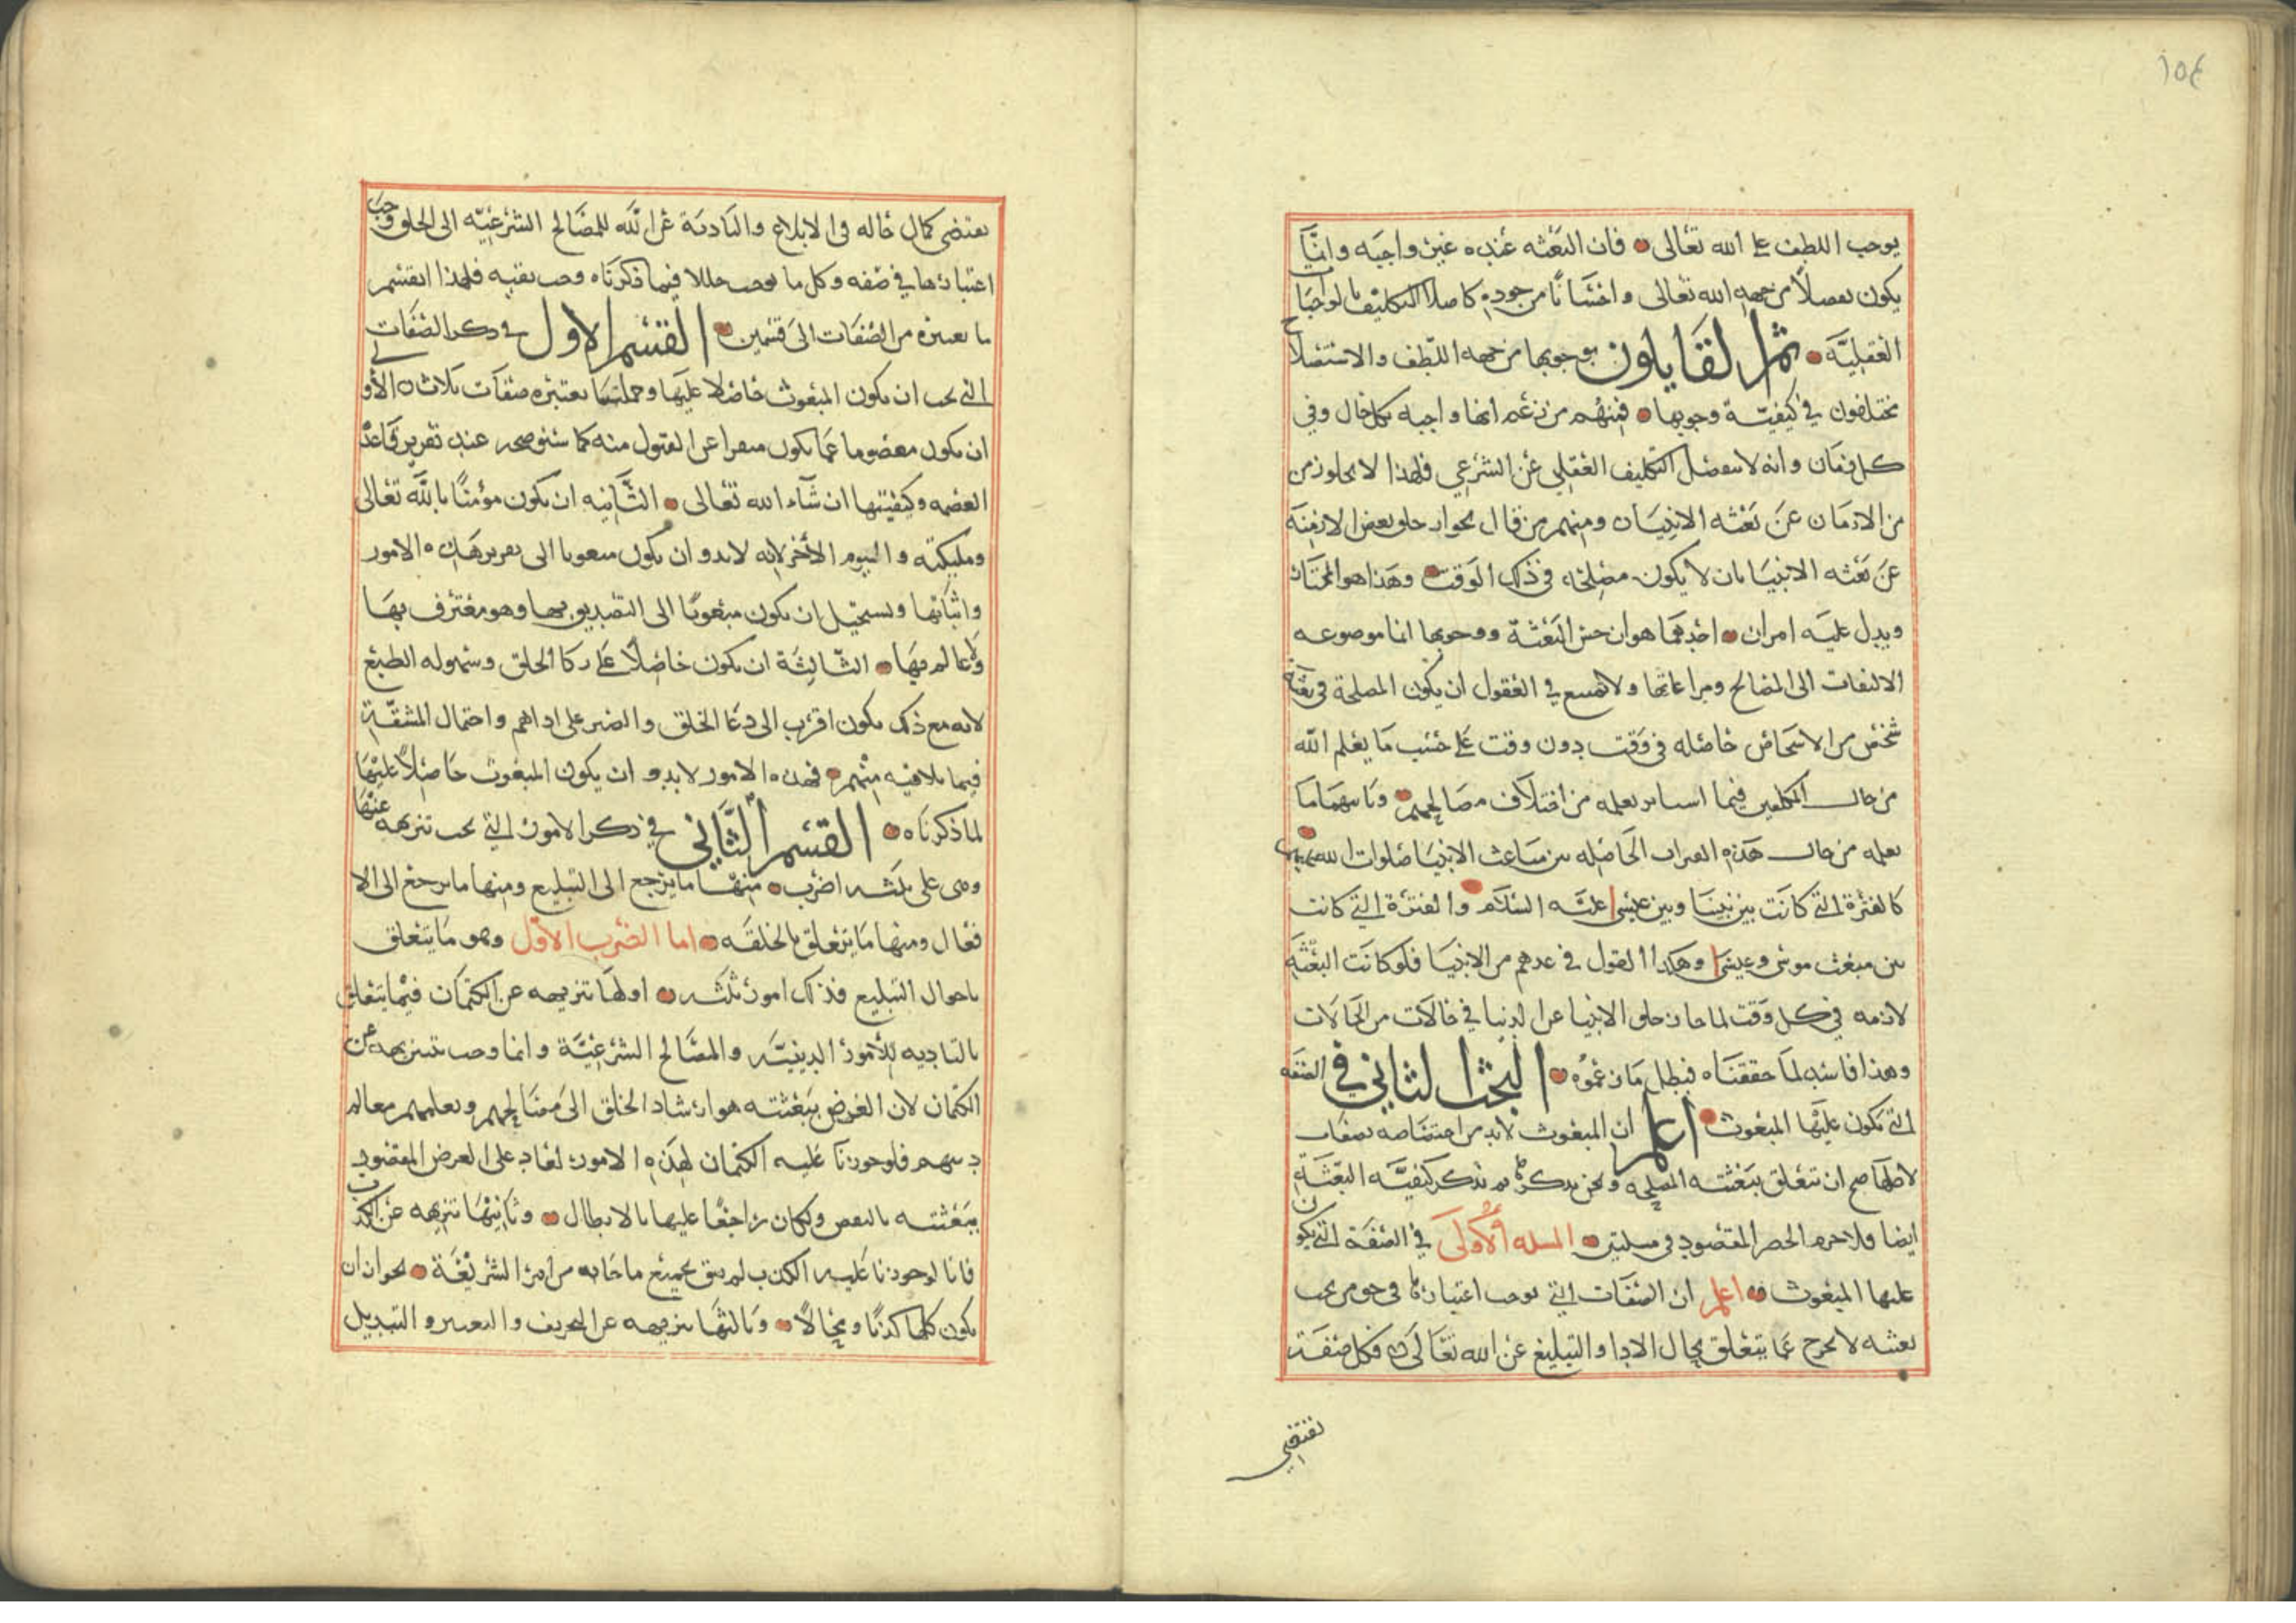 ١٥٤
يوجب اللطف على الله تعالى فان البعثه عنده غير واجبه وانما
يكون تفضلا من جهه الله تعالى واحسانا من جوده كاصل التكليف بالواجبات
العقليه ثم القايلون بوجوبها من جهه اللطف والاستصلاح
يختلفون في كيفية وجوبها فمنهم من زعم انها واجبه بكل حال وفي
كل زمان وانه لا ينفصل التكليف العقلي عن الشرعي فلهذا لا يخلو زمن
من الازمان عن بعثه الانبياء ومنهم من قال بجواز خلو بعض الازمنه
عن بعثه الانبيا بان لا يكون مصلحه في ذلك الوقت وهذا هو المختار
ويدل عليه امران احدهما هو ان حسن البعثة ووجوبها انما موضوعه
الالتفات الى المصالح ومراعاتها ولا يمتنع في العقول ان يكون المصلحة في بعثة
شخص من الاشخاص حاصله في وقت دون وقت على حسب ما يعلم الله
من حال المكلفين فيما اسا نعلمه من اختلاف مصالحهم وثانيهما ما
نعلمه من حال هذه الفترات الحاصله بين مباعث الانبيا صلوات الله عليهم
كالفترة التي كانت بين نبينا وبين عيسى عليه السلام والفترة التي كانت
بين مبعث موسى وعيسى وهكذا القول في غيرهم من الانبيا فلو كانت البعثة
لازمه في كل وقت لما جاز خلو الانبيا عن الدنيا في حالات من الحالات
وهذا فاسد لما حققناه فبطل ما زعموه البحث الثاني في الصفه
التي يكون عليها المبعوث اعلم ان المبعوث لابد من اختصاصه بصفات
لاجلها صح ان تتعلق ببعثته المصلحه ونحن نذكرها ثم نذكر كيفيه البعثة
ايضا فلا جرم الحصر المقصود في مسلتين المسله الاولى في الصفة التي يكون
عليها المبعوث اعلم ان الصفات التي يوجب اعتبارها في حق من يجب
بعثه لا يخرج عما يتعلق بحال الادا والتبليغ عن الله تعالى فكل صفة
تقتضي
تقتضي كمال حاله في الابلاغ والتادية عن الله للمصالح الشرعيه الى الخلق وجب
اعتبارها في صفه وكل ما يوجب خللا فيما ذكرناه وجب نفيه فلهذا انقسم
ما نعتبره من الصفات الى قسمين القسم الاول في ذكر الصفات
التي يجب ان يكون المبعوث حاصلا عليها وجملتها نعتبره صفات ثلاث الاولى
ان يكون معصوما عما يكون منفرا عن القبول منه كما سنوضحه عند تقرير قاعدة
العصمه وكيفيتها ان شاء الله تعالى الثانيه ان يكون مؤمنا بالله تعالى
ومليكته واليوم الاخر لانه لابد وان يكون مبعوثا الى تقرير هذه الامور
واثباتها ويستحيل ان يكون مبعوثا الى التصديق بها وهو معترف بها
ولا عالم بها الثالثة ان يكون حاصلا على زكا الخلق وسهوله الطبع
لانه مع ذلك يكون اقرب الى دعا الخلق والصبر على اذاهم واحتمال المشقة
فيما يلاقيه منهم فهذه الامور لابد وان يكون المبعوث حاصلا عليها
لما ذكرناه القسم الثاني في ذكر الامور التي يجب تنزيهه عنها
وهي على ثلثه اضرب منها ما يرجع الى التبليغ ومنها ما يرجع الى الا
فعال ومنها ما يتعلق بالخلقه اما الضرب الاول وهو ما يتعلق
باحوال التبليغ فذلك امور ثلثه اولها تنزيهه عن الكتمان فيما يتعلق
بالتاديه للامور الدينيه والمصالح الشرعية وانما وجب تنزيهه عن
الكتمان لان الغرض ببعثته هو ارشاد الخلق الى مصالحهم وتعليمهم معالم
دينهم فلو جوزنا عليه الكتمان لهذه الامور لعاد على الغرض المقصود
ببعثته بالنقض ولكان راجعا عليها بالابطال وثانيها تنزيهه عن الكذب
فانا لو جوزنا عليه الكذب لم نثق بجميع ما جا به من امر الشريعة لجواز ان
يكون كلها كذبا ومحالا وثالثها تنزيهه عن التحريف والتغيير والتبديل